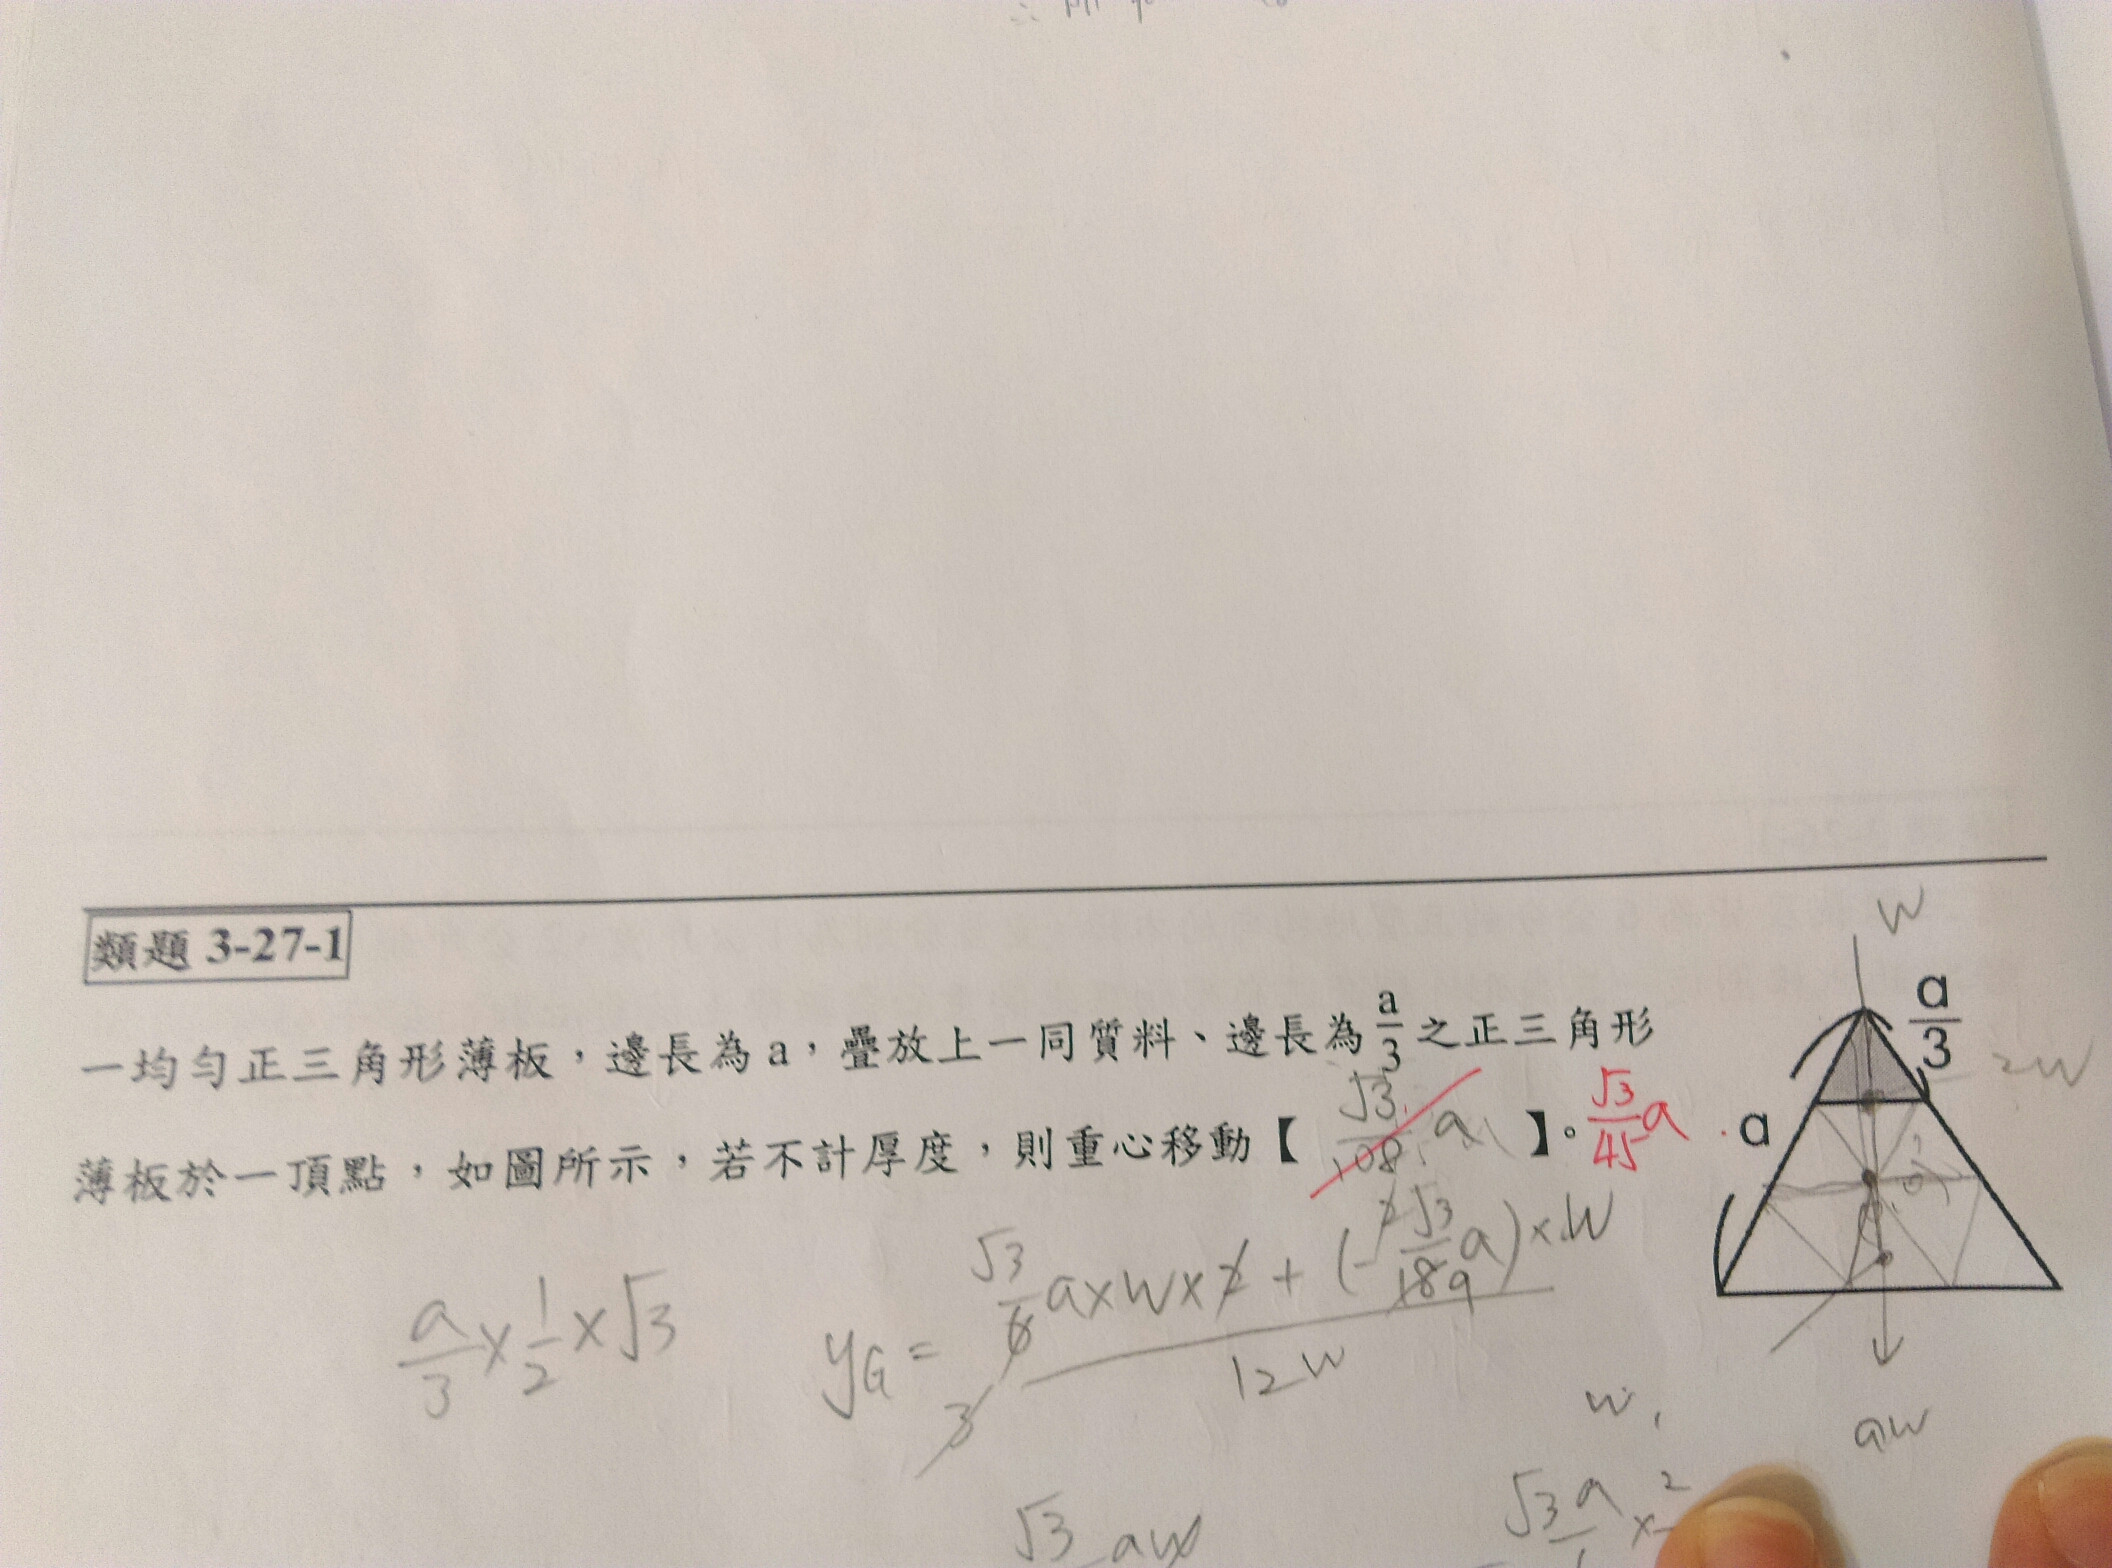 類題 3-27-1
一均勻正三角形薄板，邊長為a，疊放上一同質料、邊長為a/3之正三角形
薄板於一頂點，如圖所示，若不計厚度，則重心移動【 √3/108 a 】。 √3/45 a
W
a/3
2W
a
a/3 × 1/2 × √3
yG = (√3/6 a×W×2 + (-2√3/18 9 a)×W)/12W
3
W
9W
√3 aW
√3 a × 2